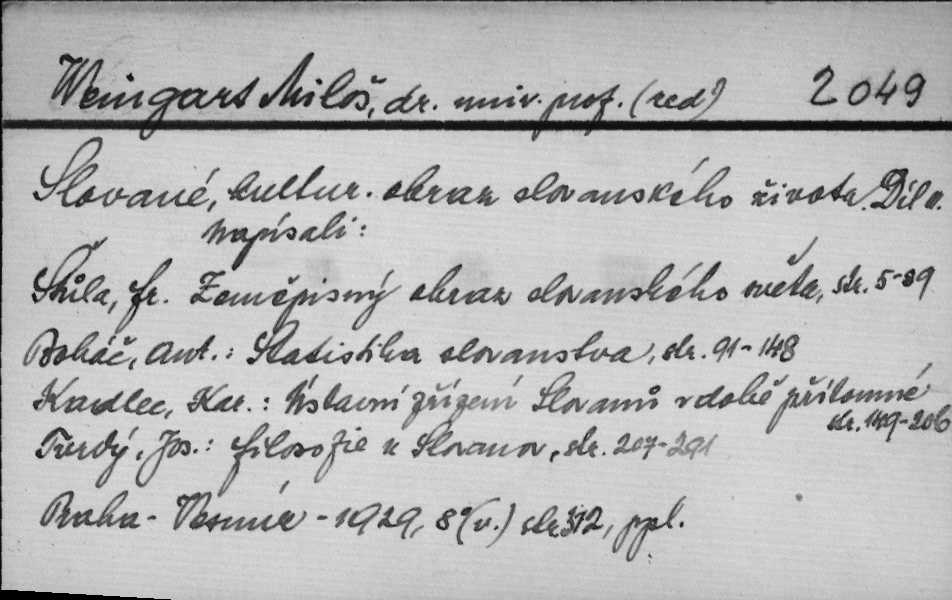 Weingart Miloš, dr. univ. prof. (red) 2049
Slované, kultur. obraz slovanského života. Díl II.
Napísali:
Štůla, Fr. Zeměpisný obraz slovanského světa, str. 5-89
Boháč, Ant.: Statistika slovanstva, str. 91-148
Kadlec, Kar.: Ústavní zřízení Slovanů v době přítomné
str. 149-206
Tvrdý, Jos.: Filosofie u Slovanov, str. 207-291
Praha - Vesmír - 1929, 8° (v.) str 312, ppl.